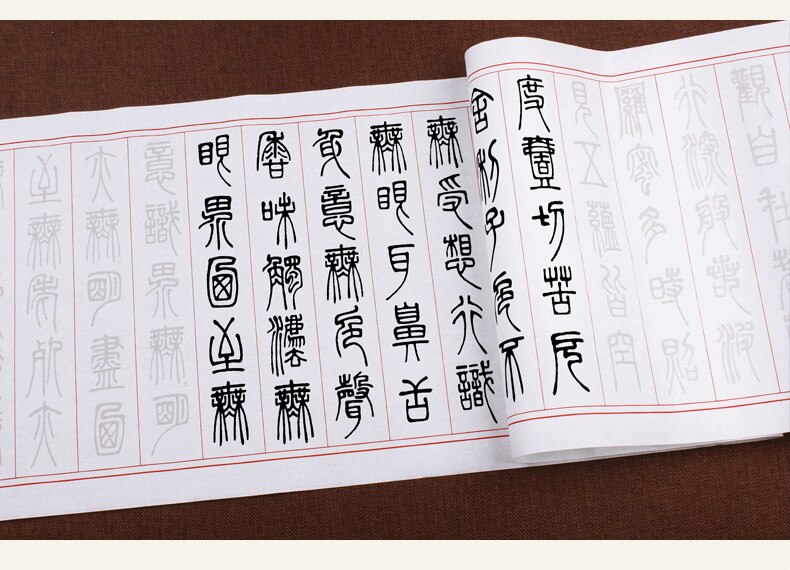 觀自在
行深般若波
羅蜜多時照
見五蘊皆空
度壹切苦厄
舍利子色不
無受想行識
無眼耳鼻舌
身意無色聲
香味觸灋無
眼界迺至無
意識界無明
亦無明盡迺
至無老死亦